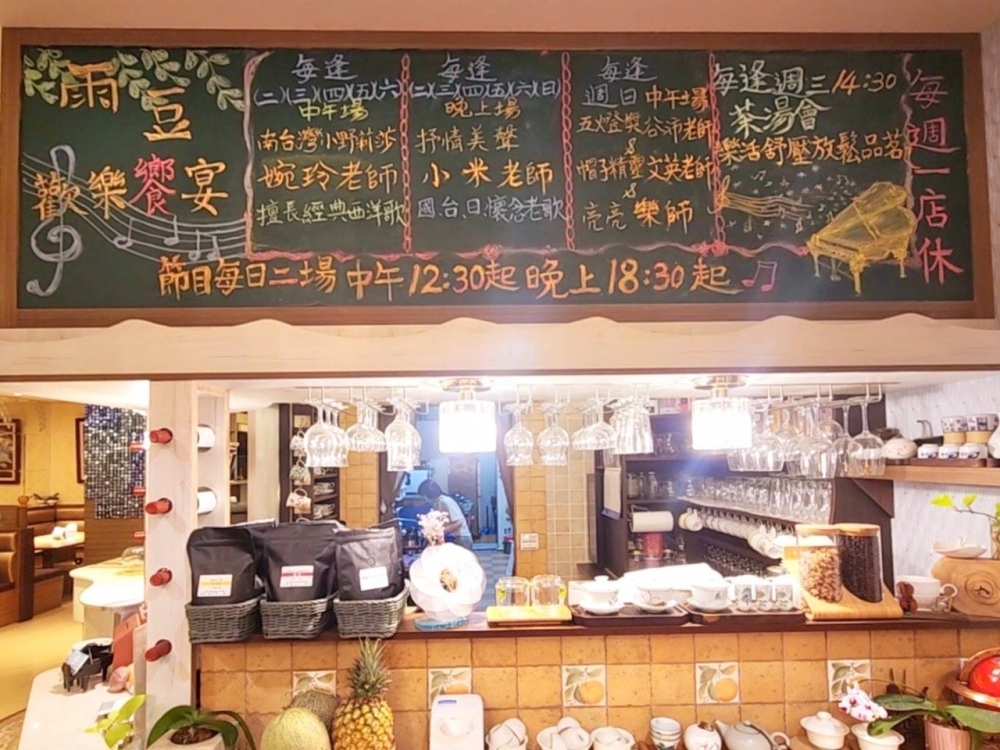 雨豆
歡樂饗宴
每逢
(二)(三)(四)(五)(六)
中午場
南台灣小野莉莎
婉玲老師
擅長經典西洋歌
每逢
(二)(三)(四)(五)(六)(日)
晚上場
抒情美聲
小米老師
國台日懷念老歌
每逢
週日中午場
五燈獎谷沛老師
&
帽子精靈文英老師
&
亮亮樂師
每逢週三14:30
茶湯會
樂活舒壓放鬆品茗
每週一店休
節目每日二場中午12:30起晚上18:30起